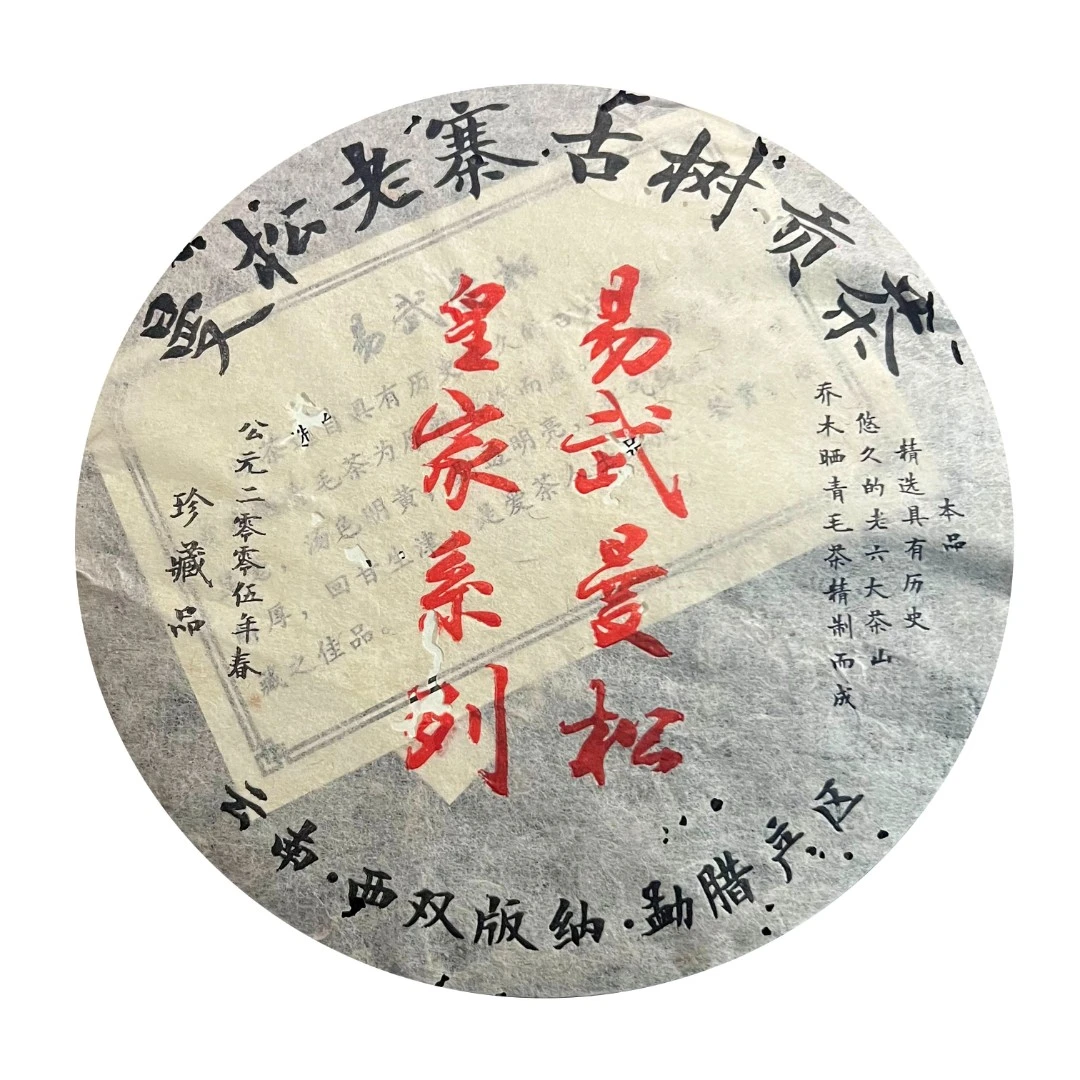 曼松老寨·古树贡茶
易武曼松
皇家系列
本品
精选具有历史
悠久的老六大茶山
乔木晒青毛茶精制而成
公元二零零伍年春
珍藏品
云南·西双版纳·勐腊产区
易武
具有历史
毛茶为
汤色明黄 明亮，
厚，回甘生津 是爱茶人
藏之佳品。